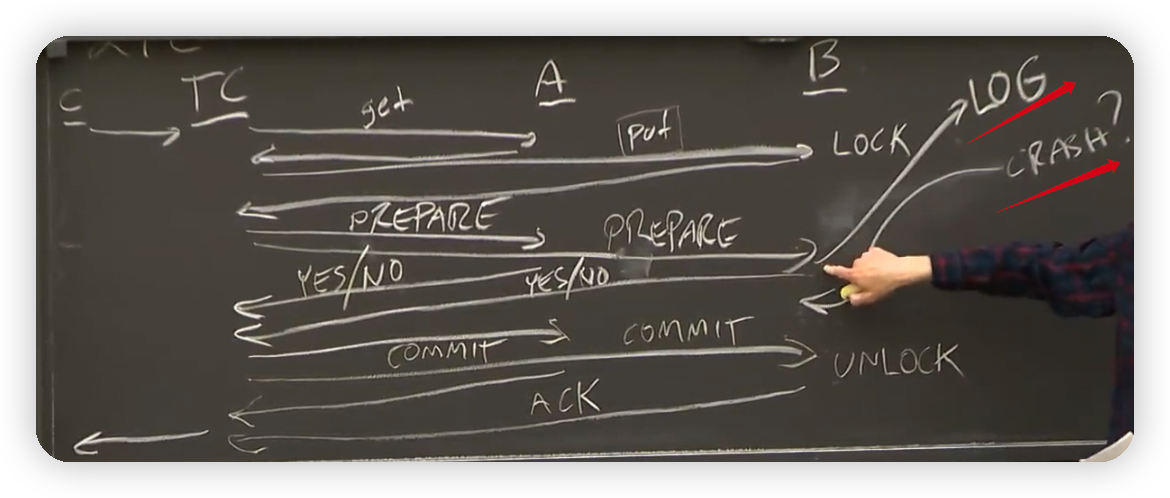 C TC A B
get
put
LOCK
LOG
CRASH?
PREPARE
PREPARE
YES/NO
YES/NO
COMMIT
COMMIT
UNLOCK
ACK